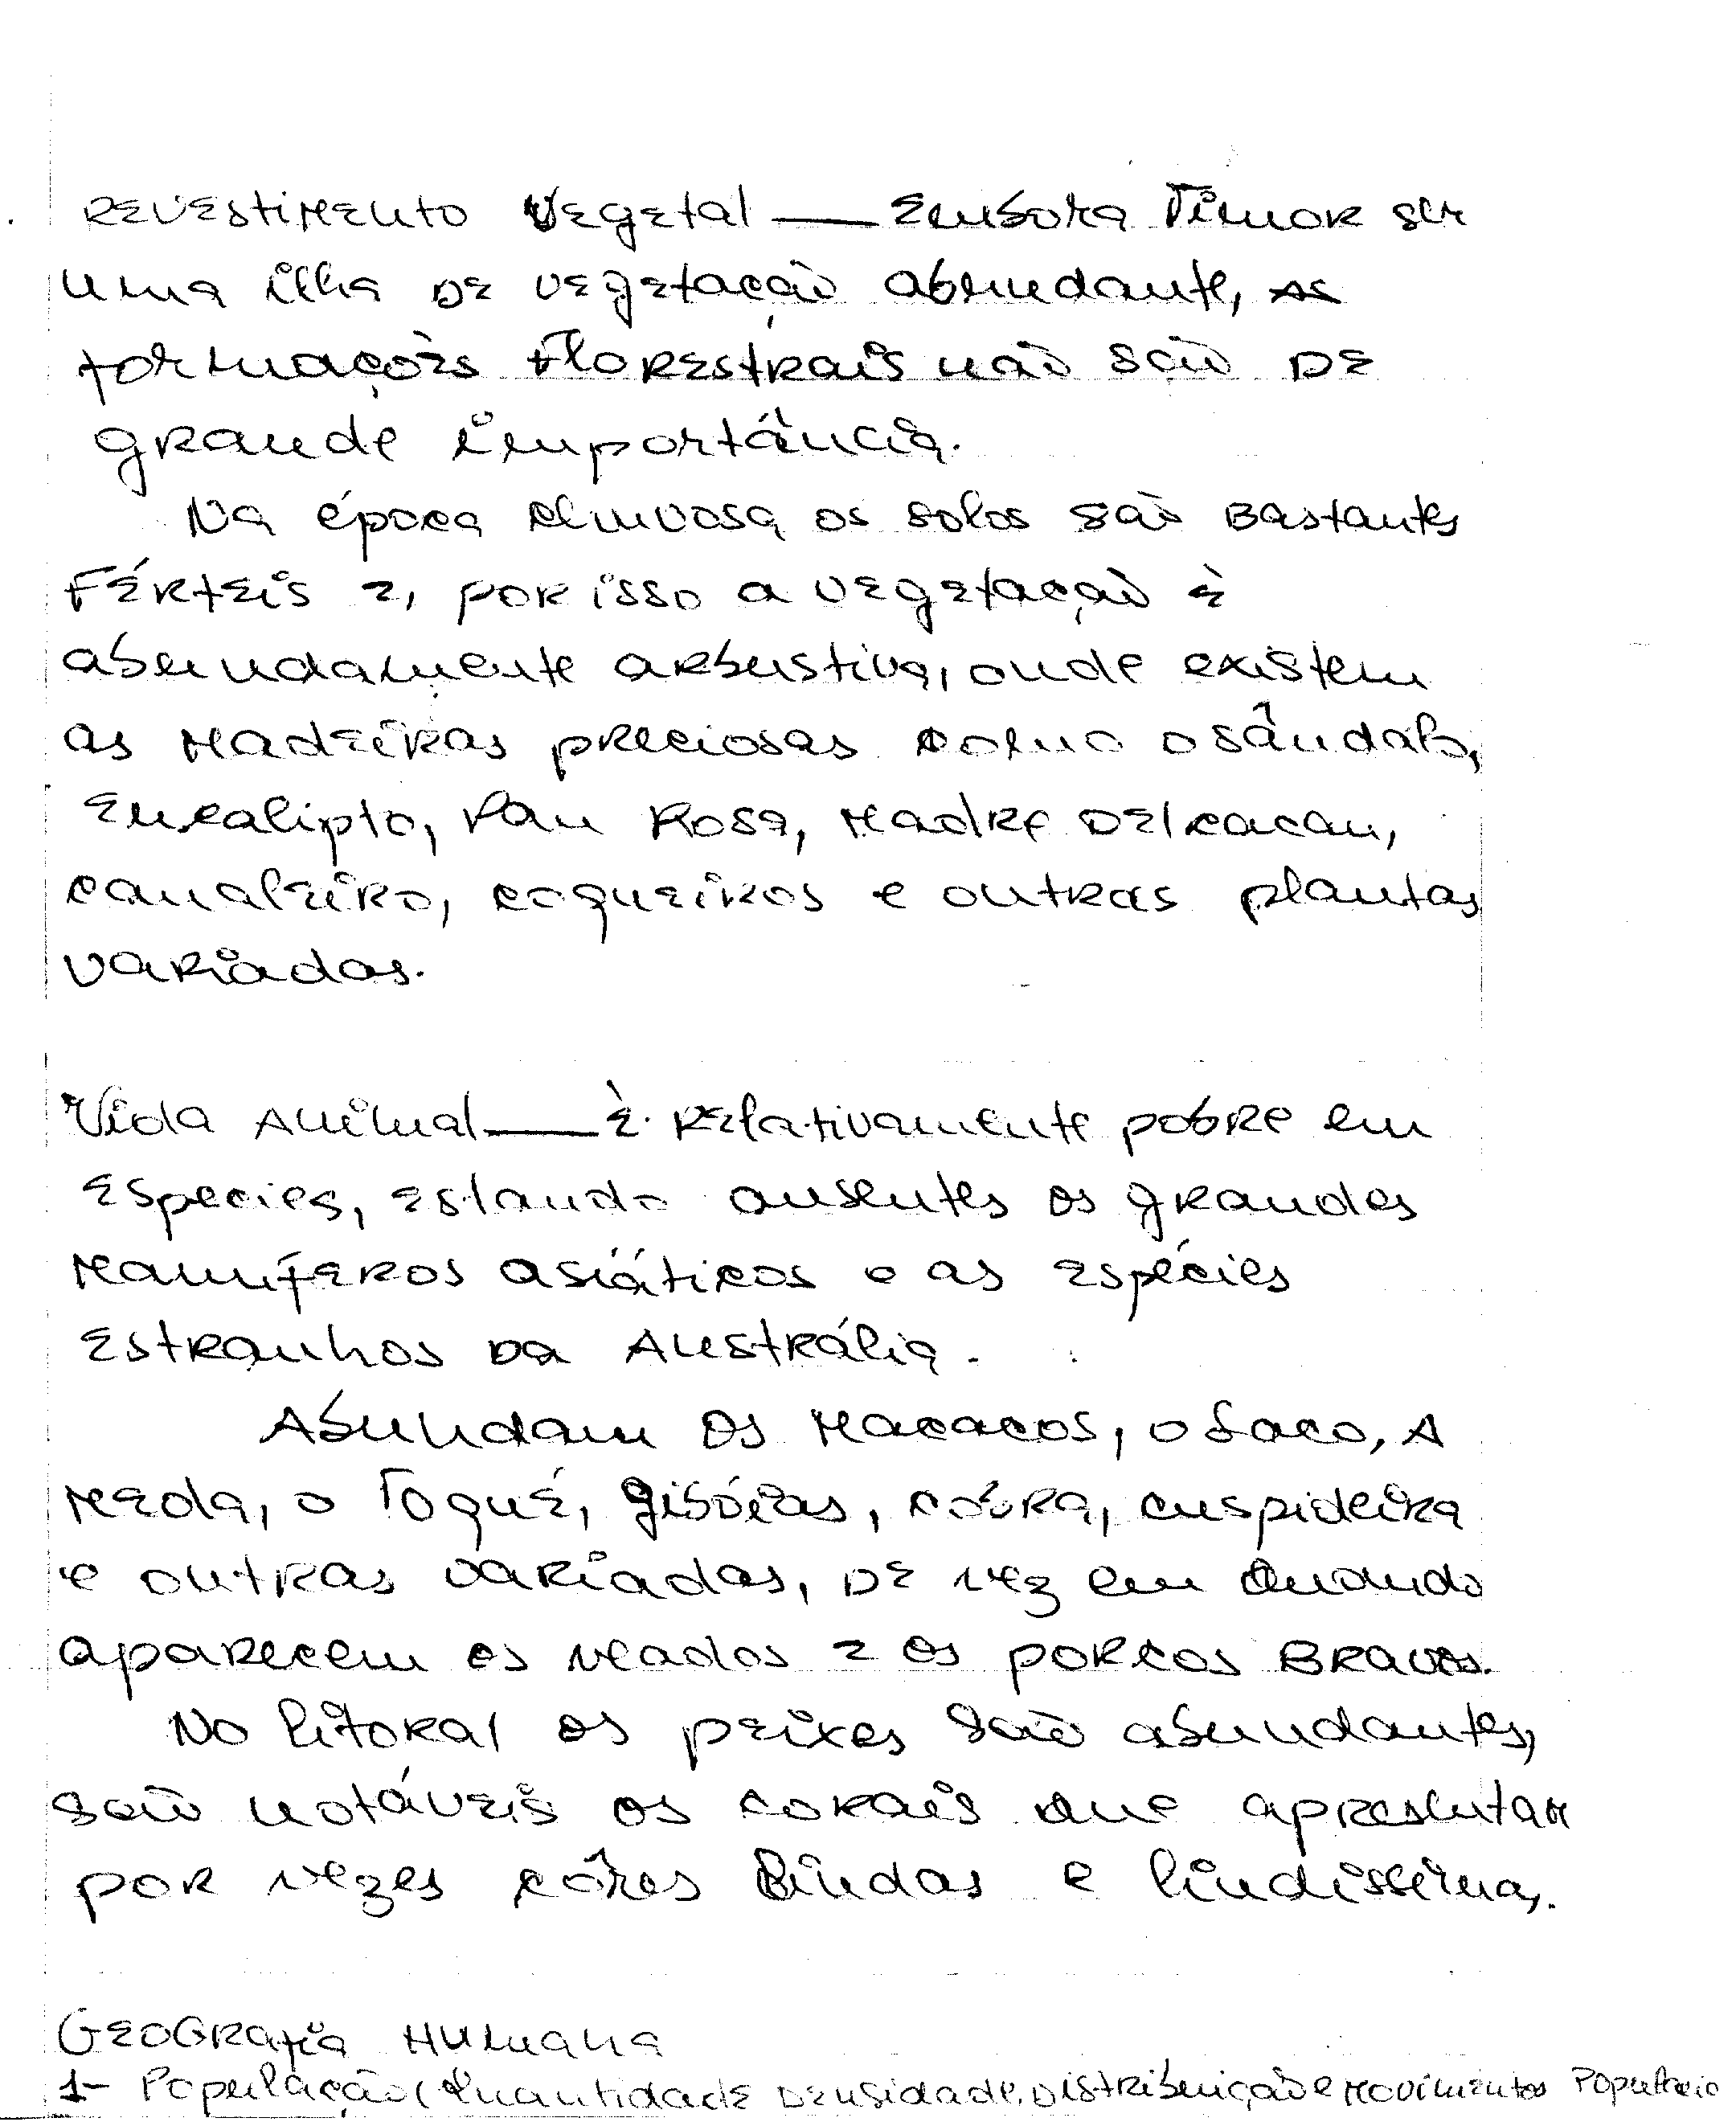 Revestimento Vegetal — Embora Timor ser
uma ilha de vegetação abundante, as
formações florestrais não são de
grande importância.
Na época chuvosa os solos são bastantes
Férteis e, por isso a vegetação è
abundamente arbustiva, onde existem
as madeiras preciosas como o sândalo,
Eucalipto, Pau Rosa, Madre Delcacau,
canaleiro, coqueiros e outras plantas
variadas.
Vida Animal — È relativamente pobre em
Especies, estando ausentes os grandes
mamíferos asiáticos e as espécies
estranhos da Austrália.
Abundam os macacos, o laco, a
meda, o Toqué, jibóias, cobra, cuspideira
e outras variadas, de vez em quando
aparecem os veados e os porcos Bravos.
No litoral os peixes são abundantes,
são notáveis os corais que apresentam
por vezes côres lindas e lindissimas.
Geografia Humana
1- População (Quantidade Densidade, Distribuição e Movimentos Populacio